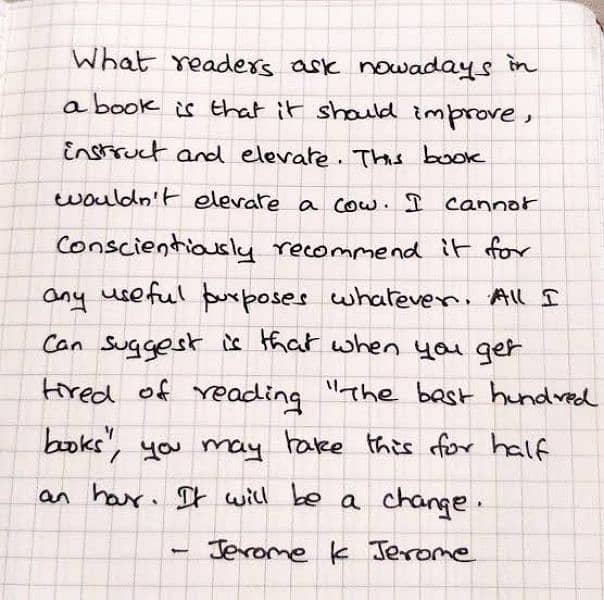 What readers ask nowadays in
a book is that it should improve,
instruct and elevate. This book
wouldn't elevate a cow. I cannot
conscientiously recommend it for
any useful purposes whatever. All I
can suggest is that when you get
tired of reading "The best hundred
books", you may take this for half
an hour. It will be a change.
- Jerome K Jerome